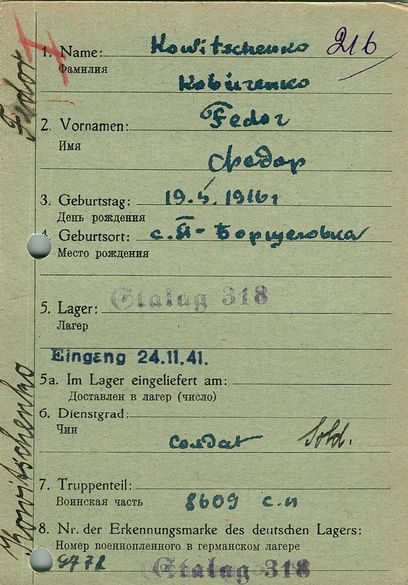 1. Name: Kowitschenko 216
Фамилия
2. Vornamen: Fedor
Имя Федор
3. Geburtstag: 19.5.1916г
День рождения
4. Geburtsort: с. П-Борщеговка
Место рождения
5. Lager: Stalag 318
Лагерь
Eingang 24.11.41.
5a. Im Lager eingeliefert am:
Доставлен в лагерь (число)
6. Dienstgrad:
Чин
Soldat Sold.
7. Truppenteil:
Воинская часть 8609 с.п
8. Nr. der Erkennungsmarke des deutschen Lagers:
Номер военнопленного в германском лагере
Stalag 318
Fedor
Kowitschenko